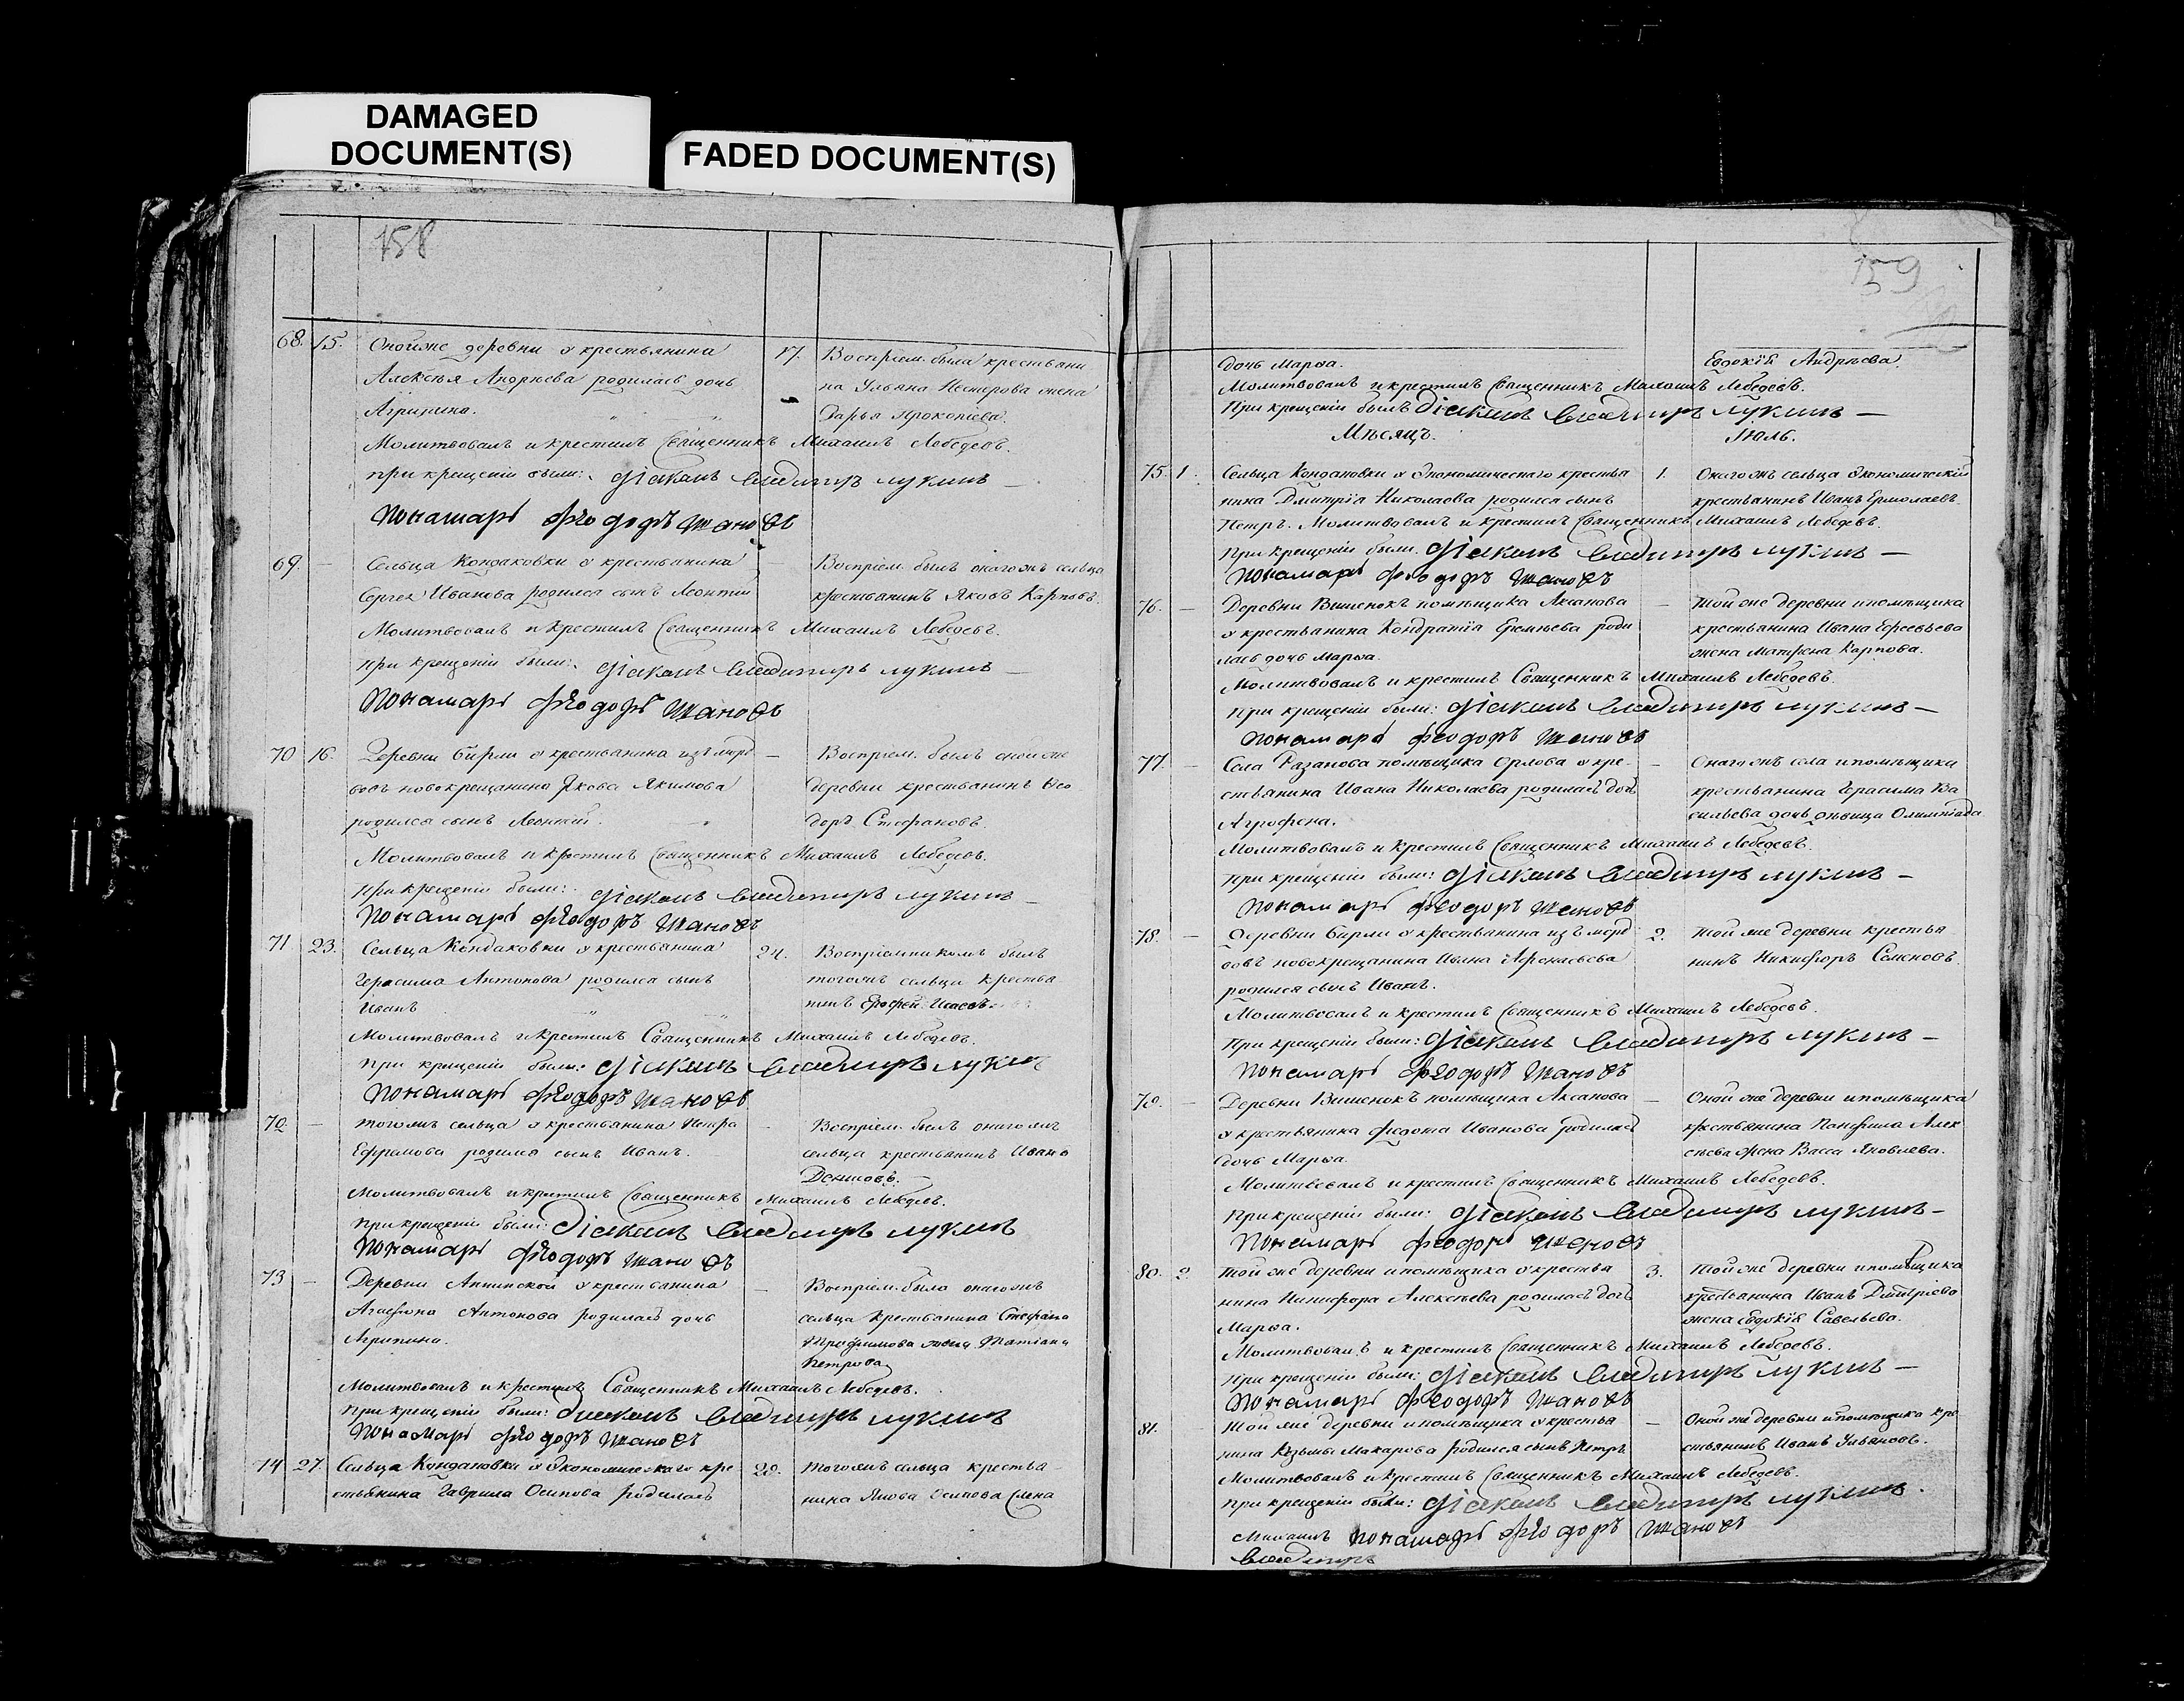 DAMAGED
DOCUMENT(S)
FADED DOCUMENT(S)
158
68. 15. Онойже деревни у крестьянина 17. Воспріем. была крестьяни
Алексѣя Андреева родилась дочь на Ульяна Нестерова жена
Агрипина. Дарья Прокопіева.
Молитвовалъ и крестилъ Священникъ Михаилъ Лебедевъ.
при крещеніи были: діаконъ Владимиръ Лукинъ
Пономарь Феодоръ
69. — Сельца Кондаковки у крестьянина — Воспріем. былъ онагожъ сельца
Сергея Иванова родился сынъ Леонтій крестьянинъ Яковъ Карповъ.
Молитвовалъ и крестилъ Священникъ Михаилъ Лебедевъ.
при крещеніи были: діаконъ Владимиръ Лукинъ
Пономарь Феодоръ
70 16. Деревни Бирли у крестьянина изъ морд — Воспріем. былъ онойже
вовъ новокрещанина Якова Якимова деревни крестьянинъ Ѳео
родился сынъ Леонтій. доръ Стефановъ.
Молитвовалъ и крестилъ Священникъ Михаилъ Лебедевъ.
При крещеніи были: діаконъ Владимиръ Лукинъ
Пономарь Феодоръ
71 23. Сельца Кондаковки у крестьянина 24. Воспріемникомъ былъ
Герасима Антонова родился сынъ тогожъ сельца крестья
Иванъ нинъ Ерофей Исаевъ.
Молитвовалъ и крестилъ Священникъ Михаилъ Лебедевъ.
При крещеніи были: діаконъ Владимиръ Лукинъ
Пономарь Феодоръ
72. — тогожъ сельца у крестьянина Петра — Воспріем. былъ онагожъ
Ефрамова родился сынъ Иванъ. сельца крестьянинъ Иванъ
Денисовъ.
Молитвовалъ и крестилъ Священникъ Михаилъ Лебедевъ.
При крещеніи были: Діаконъ Владимиръ Лукинъ
Пономарь Феодоръ
73 — Деревни Аннинской у крестьянина — Воспріем. была онагожъ
Агафона Антонова родилась дочь сельца крестьянина Стефана
Агрипина. Трофимова жена Татіана
Петрова
Молитвовалъ и крестилъ Священникъ Михаилъ Лебедевъ.
При крещеніи были: діаконъ Владимиръ Лукинъ
Пономарь Феодоръ
74 27. Сельца Кондаковки у экономическаго кре 28. тогожъ сельца крестья
стьянина Гаврила Осипова родилась нина Якова Осипова жена
159
дочь Марѳа. Евдокія Андреева.
Молитвовалъ и крестилъ Священникъ Михаилъ Лебедевъ.
При крещеніи былъ діаконъ Владимиръ Лукинъ —
Мѣсяцъ. Іюль.
75. 1. Сельца Кондаковки у экономическаго крестья 1. Онагожъ сельца экономическій
нина Дмитрія Николаова родился сынъ крестьянинъ Иванъ Ермолаевъ.
Петръ. Молитвовалъ и крестилъ Священникъ Михаилъ Лебедевъ.
При крещеніи были: діаконъ Владимиръ Лукинъ —
Пономарь Феодоръ
76. — Деревни Вишенокъ помѣщика Аксакова — той же деревни и помѣщика
у крестьянина Кондратія Еремѣева роди крестьянина Ивана
лась дочь Марѳа. жена Матрена Карпова.
Молитвовалъ и крестилъ Священникъ Михаилъ Лебедевъ.
При крещеніи были: діаконъ Владимиръ Лукинъ —
Пономарь Феодоръ
77. — Села Разанова помѣщика Орлова у кре- — Онагожъ села и помѣщика
стьянина Ивана Николаева родилась дочь крестьянина Герасима Ва
Агрофена. сильева дочь дѣвица Олимпіада
Молитвовалъ и крестилъ Священникъ Михаилъ Лебедевъ.
При крещеніи были: діаконъ Владимиръ Лукинъ —
Пономарь Феодоръ
78. — Деревни Бирли у крестьянина изъ морд 2. той же деревни крестья
вовъ новокрещанина Ивана Афонасьева нинъ Никифоръ Семеновъ.
родился сынъ Иванъ.
Молитвовалъ и крестилъ Священникъ Михаилъ Лебедевъ.
При крещеніи были: діаконъ Владимиръ Лукинъ —
Пономарь Феодоръ
79. — Деревни Вишенокъ помѣщика Аксакова — Оной же деревни и помѣщика
у крестьянина Федота Иванова родилась крестьянина Панфила Алек
дочь Марѳа. сѣева жена Васса Яковлева.
Молитвовалъ и крестилъ Священникъ Михаилъ Лебедевъ.
При крещеніи были: діаконъ Владимиръ Лукинъ —
Пономарь Феодоръ
80. 2. той же деревни и помѣщика у крестья 3. той же деревни и помѣщика
нина Никифора Алексѣева родилась дочь крестьянина Иванъ Дмитріева
Марѳа. жена Евдокія Савельева.
Молитвовалъ и крестилъ Священникъ Михаилъ Лебедевъ.
При крещеніи были: діаконъ Владимиръ Лукинъ —
Пономарь Феодоръ
81. той же деревни и помѣщика у крестья — Оной же деревни и помѣщика кре
нина Козьмы Макарова родился сынъ Петръ стьянинъ Иванъ Ульяновъ.
Молитвовалъ и крестилъ Священникъ Михаилъ Лебедевъ.
При крещеніи были: діаконъ Владимиръ Лукинъ.
Михаилъ Пономарь Феодоръ
Владимиръ